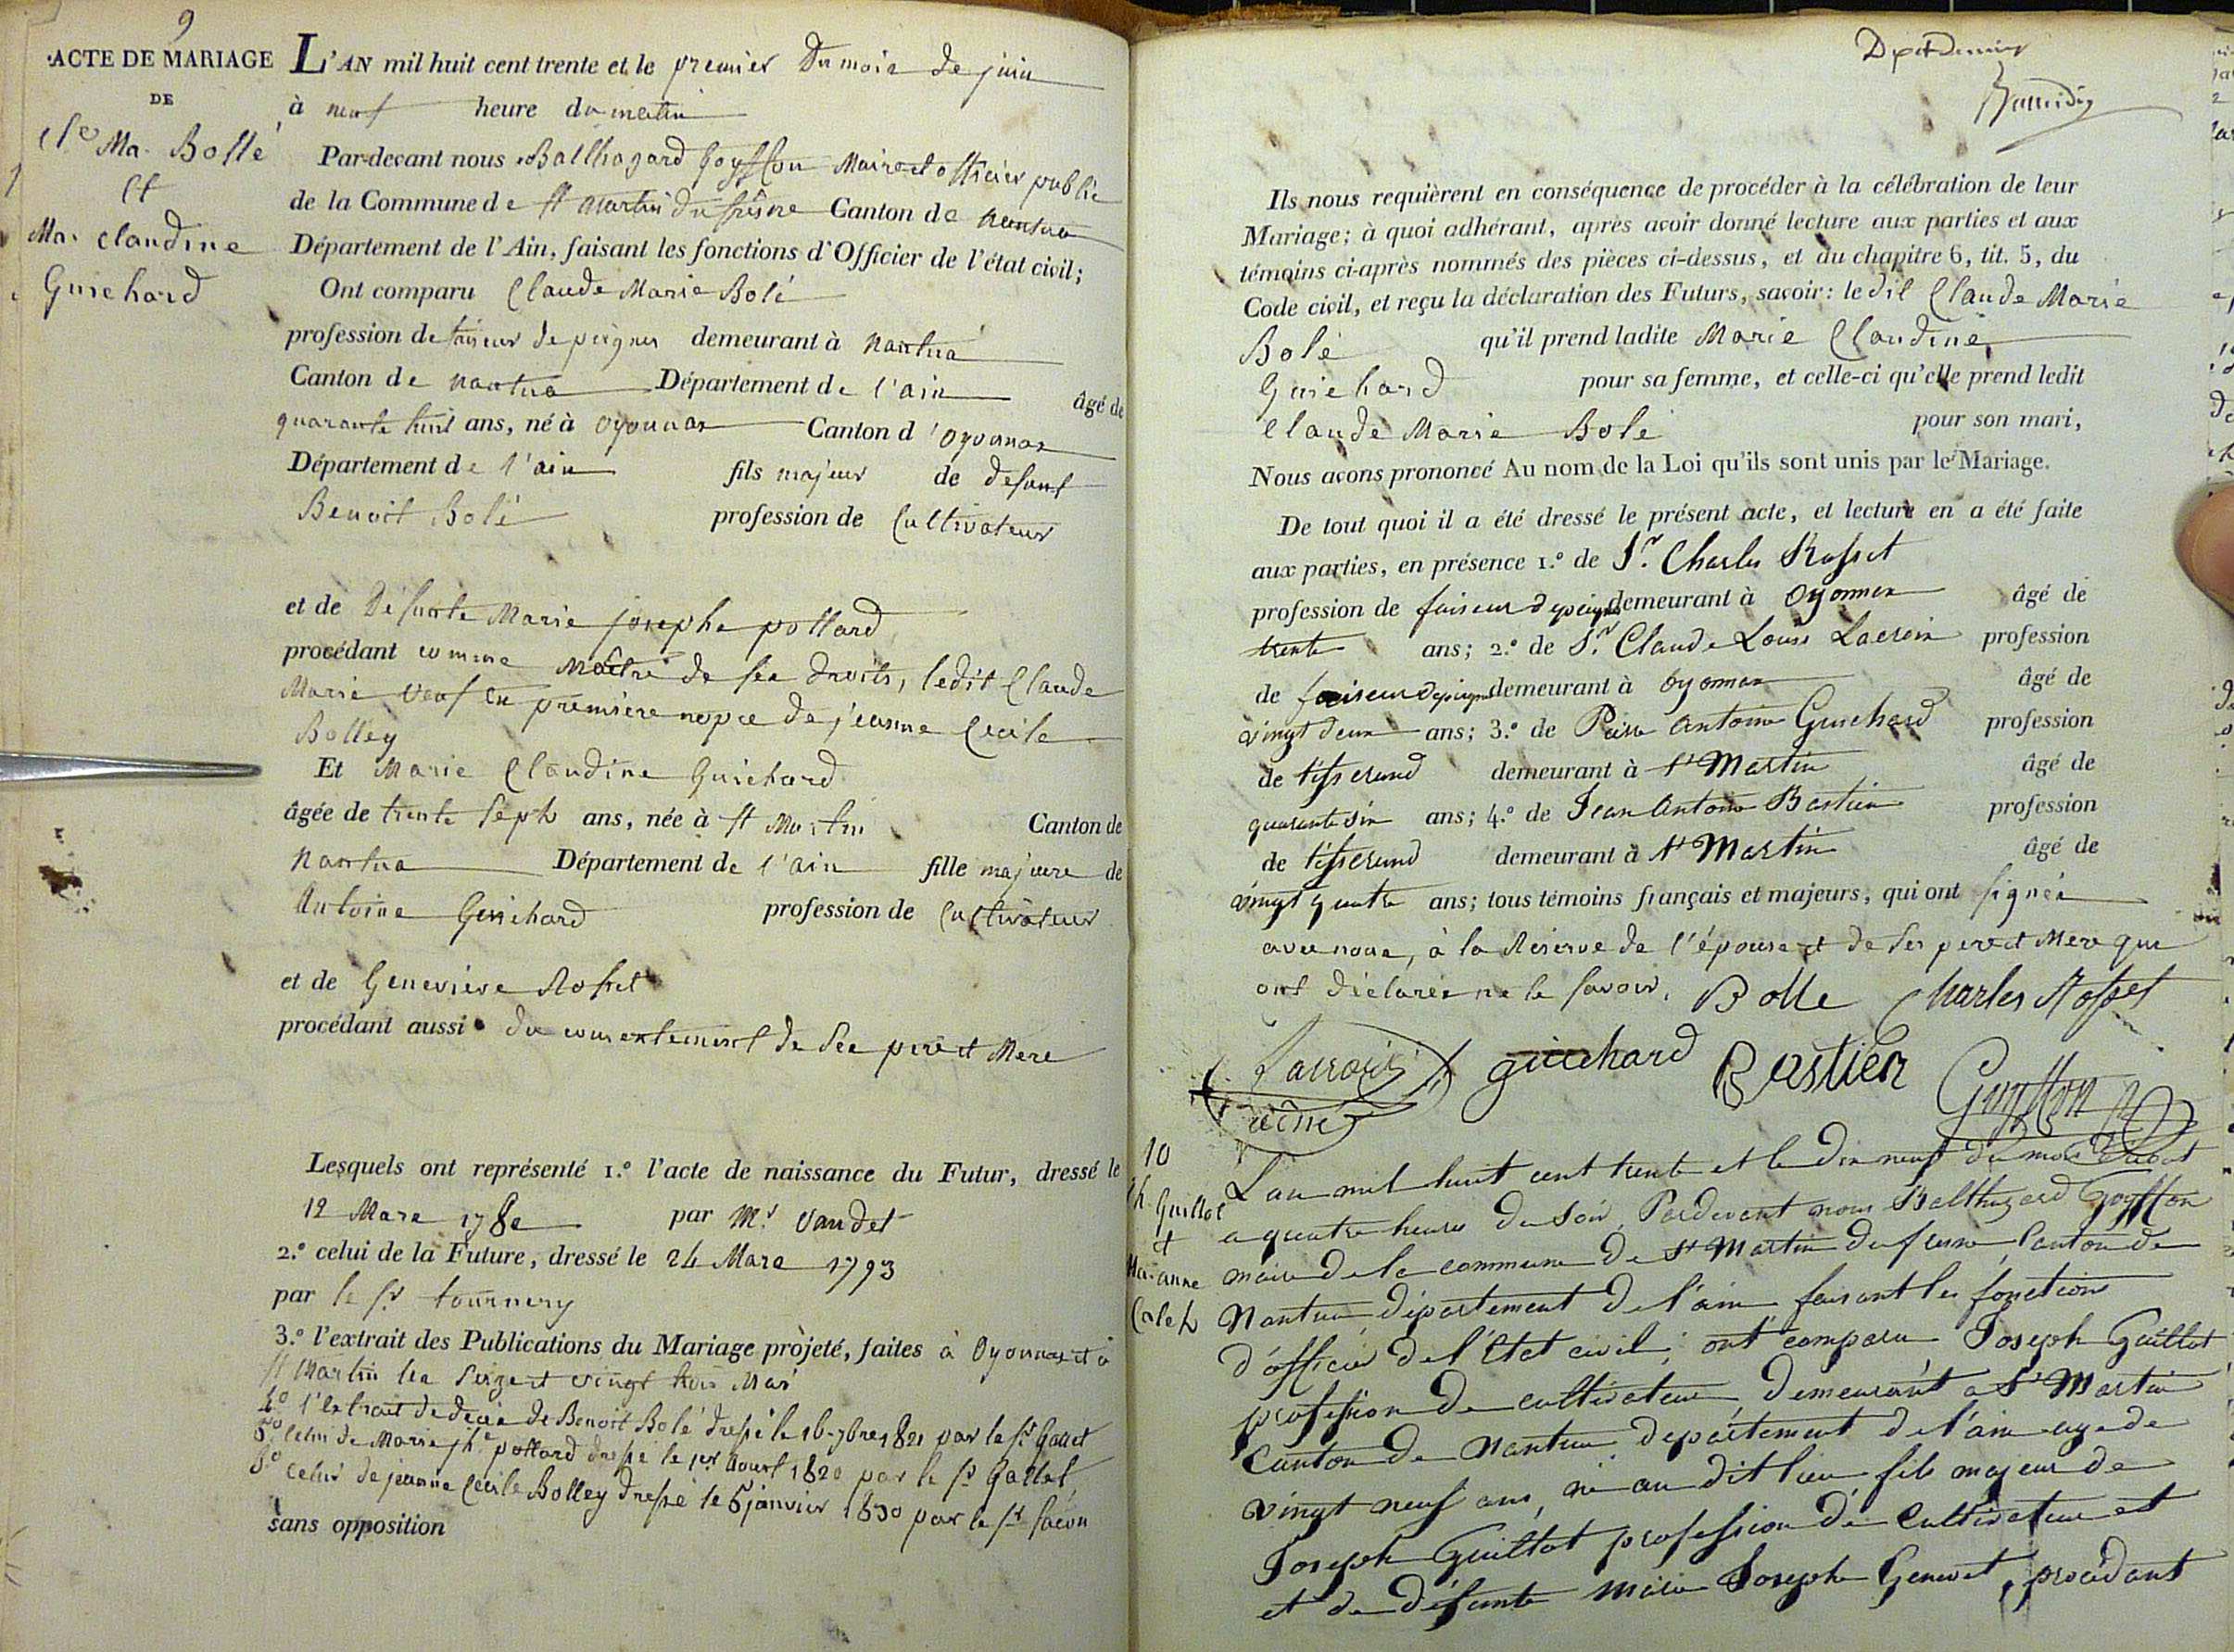 9
ACTE DE MARIAGE
DE
Cl.e Ma. Bollé
et
Ma. Claudine
Guichard
L'AN mil huit cent trente et le premier Du mois de juin
à neuf heure du matin
Par-devant nous Balthazard Goyffon Maire et officier public
de la Commune de st Martin du frêsne Canton de nantua
Département de l'Ain, faisant les fonctions d'Officier de l'état civil;
Ont comparu Claude Marie Bolé
profession de faiseur de peignes demeurant à nantua
Canton de nantua Département de l'ain âgé de
quarante huit ans, né à oyonnax Canton d'oyonnax
Département de l'ain fils majeur de defunt
Benoit Bolé profession de Cultivateur
et de Défunte Marie josephe pottard
procédant comme Maître de ses droits, ledit Claude
Marie veuf en première nopce de jeanne Cecile
Bolley
Et Marie Claudine Guichard
âgée de trente sept ans, née à st Martin Canton de
Nantua Département de l'ain fille majeure de
Antoine Guichard profession de Cultivateur
et de Geneviève Rosset
procédant aussi du consentement de ses père et Mere
Lesquels ont représenté 1.º l'acte de naissance du Futur, dressé le
12 Mars 1782 par Mr. Vandel
2.º celui de la Future, dressé le 24 Mars 1793
par le sr tournery
3.º l'extrait des Publications du Mariage projeté, faites à Oyonnax et à
st Martin les seize et vingt trois Mai
4º l'extrait de decès de Benoit Bolé dressé le 16 7bre 1821 par le sr Gallet
5º celui de Marie jhe pottard dressé le 1er Aoust 1820 par le sr Gallet,
6º celui de jeanne Cecile Bolley dressé le 5 janvier 1830 par le sr
sans opposition
Ils nous requièrent en conséquence de procéder à la célébration de leur
Mariage; à quoi adhérant, après avoir donné lecture aux parties et aux
témoins ci-après nommés des pièces ci-dessus, et du chapitre 6, tit. 5, du
Code civil, et reçu la déclaration des Futurs, savoir: le dit Claude Marie
Bolé qu'il prend ladite Marie Claudine
Guichard pour sa femme, et celle-ci qu'elle prend ledit
Claude Marie Bolé pour son mari,
Nous avons prononcé Au nom de la Loi qu'ils sont unis par le Mariage.
De tout quoi il a été dressé le présent acte, et lecture en a été faite
aux parties, en présence 1.º de Sr. Charles Rosset
profession de faiseur de peignes demeurant à Oyonnax âgé de
trente ans; 2.º de Sr. Claude Louis Lacroix profession
de faiseur de peignes demeurant à oyonnax âgé de
vingt deux ans; 3.º de Pierre antoine Guichard profession
de tisserand demeurant à st Martin âgé de
quarante six ans; 4.º de Jean Antoine Bastien profession
de tisserand demeurant à st Martin âgé de
vingt quatre ans; tous témoins français et majeurs, qui ont signés
avec nous, à la Réserve de l'épouse et de ses pere et Mere qui
ont déclarés ne le savoir. Bolle Charles Rosset
Lacroix guichard Bastien Goyffon
ainé
10
Jh. Guillot
et
Ma. anne
Calet
L'an mil huit cent trente et le dix neuf du mois
a quatre heures du soir, Pardevant nous Balthazard Goyffon
maire de la commune de st Martin du fresne Canton de
Nantua département de l'ain faisant les fonctions
d'officier de l'état civil; ont comparu Joseph Guillot
profession de cultivateur demeurant a st Martin
Canton de Nantua département de l'ain age de
vingt neuf ans, né au dit lieu fils majeur de
Joseph Guillot profession de Cultivateur et
et de défunte Marie Joseph Genevet, procédant